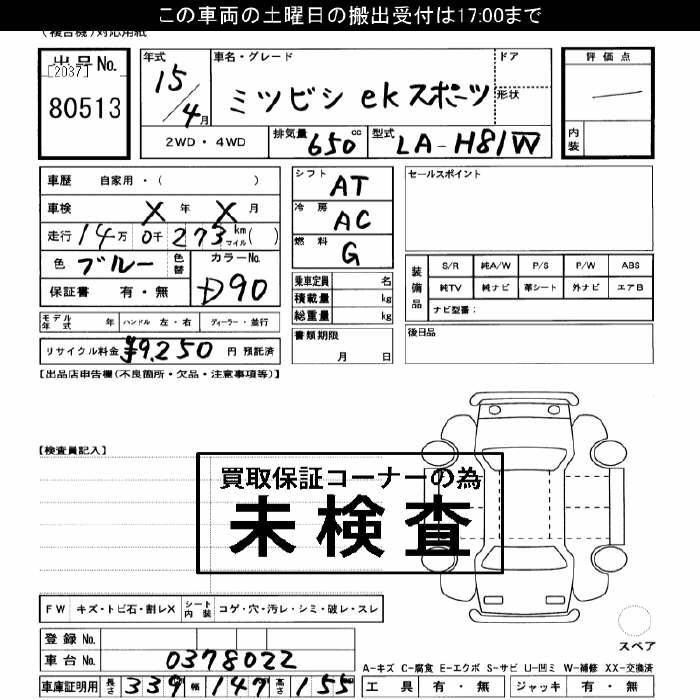 この車両の土曜日の搬出受付は17:00まで
(複合機)対応用紙
出品No.
[2037]
80513
年式
15/4月
車名・グレード
ミツビシ ekスポーツ
ドア
形状
評価点
内装
2WD・4WD
排気量 650 cc
型式 LA-H81W
車歴 自家用・( )
車検 X 年 X 月
走行 14万 0千 273 km マイル( )
色 ブルー 色替
カラーNo.
D90
保証書 有・無
シフト AT
冷房 AC
燃料 G
乗車定員 名
積載量 kg
総重量 kg
セールスポイント
装備品
S/R 純A/W P/S P/W ABS
純TV 純ナビ 革シート 外ナビ エアB
ナビ型番:
モデル年式 年 ハンドル 左・右 ディーラー・並行
書類期限
月 日
後日品
リサイクル料金 ¥9,250 円 預託済
【出品店申告欄(不良箇所・欠品・注意事項等)】
【検査員記入】
買取保証コーナーの為
未検査
FW キズ・トビ石・割レX シート内装 コゲ・穴・汚レ・シミ・破レ・スレ
スペア
登録No.
車台No. 0378022
A-キズ C-腐食 E-エクボ S-サビ U-凹ミ W-補修 XX-交換済
車庫証明用 長さ 339 幅 147 高さ 155
工具 有・無 ジャッキ 有・無